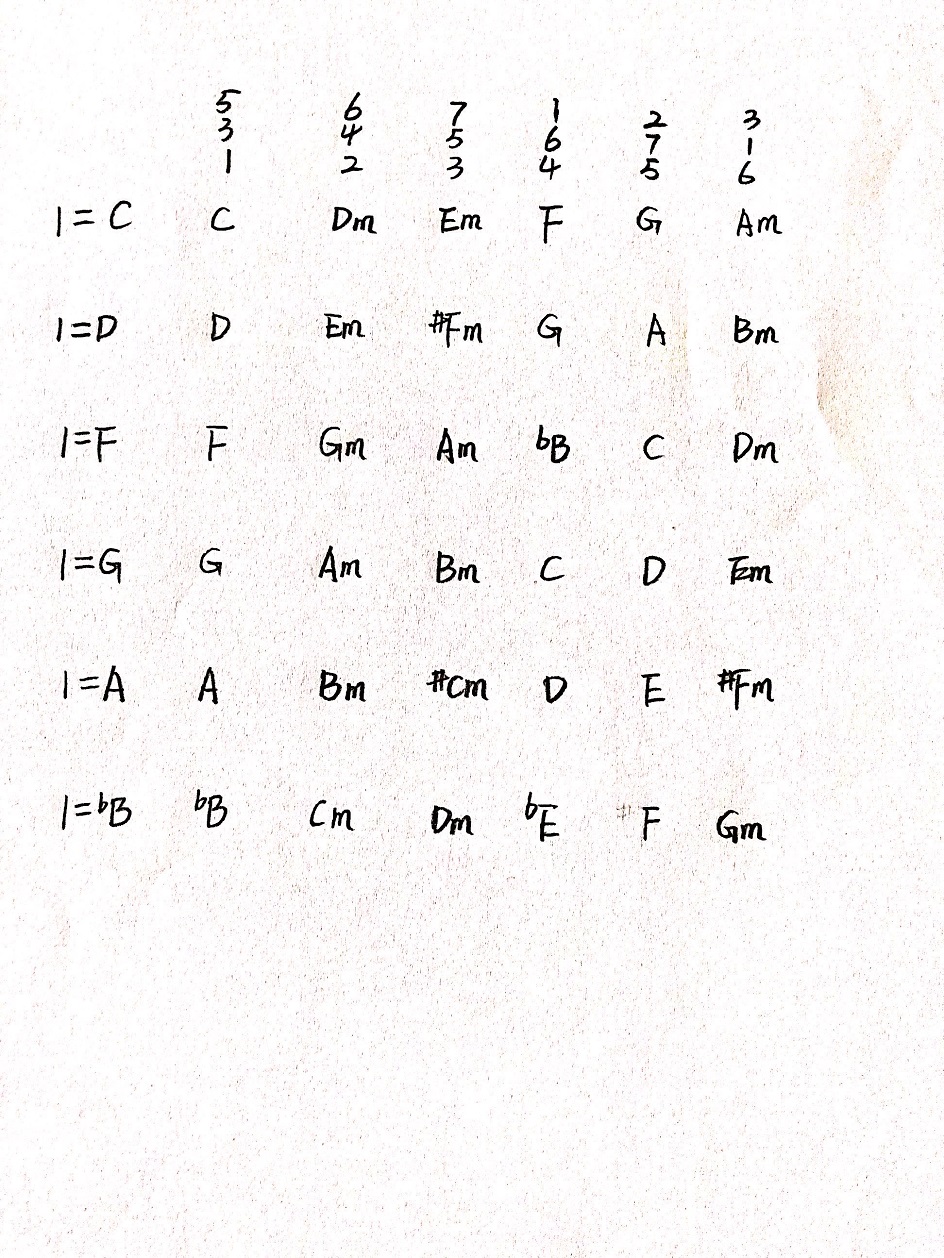 5 6 7 1 2 3
3 4 5 6 7 1
1 2 3 4 5 6
1=C C Dm Em F G Am
1=D D Em #Fm G A Bm
1=F F Gm Am bB C Dm
1=G G Am Bm C D Em
1=A A Bm #Cm D E #Fm
1=bB bB Cm Dm bE F Gm